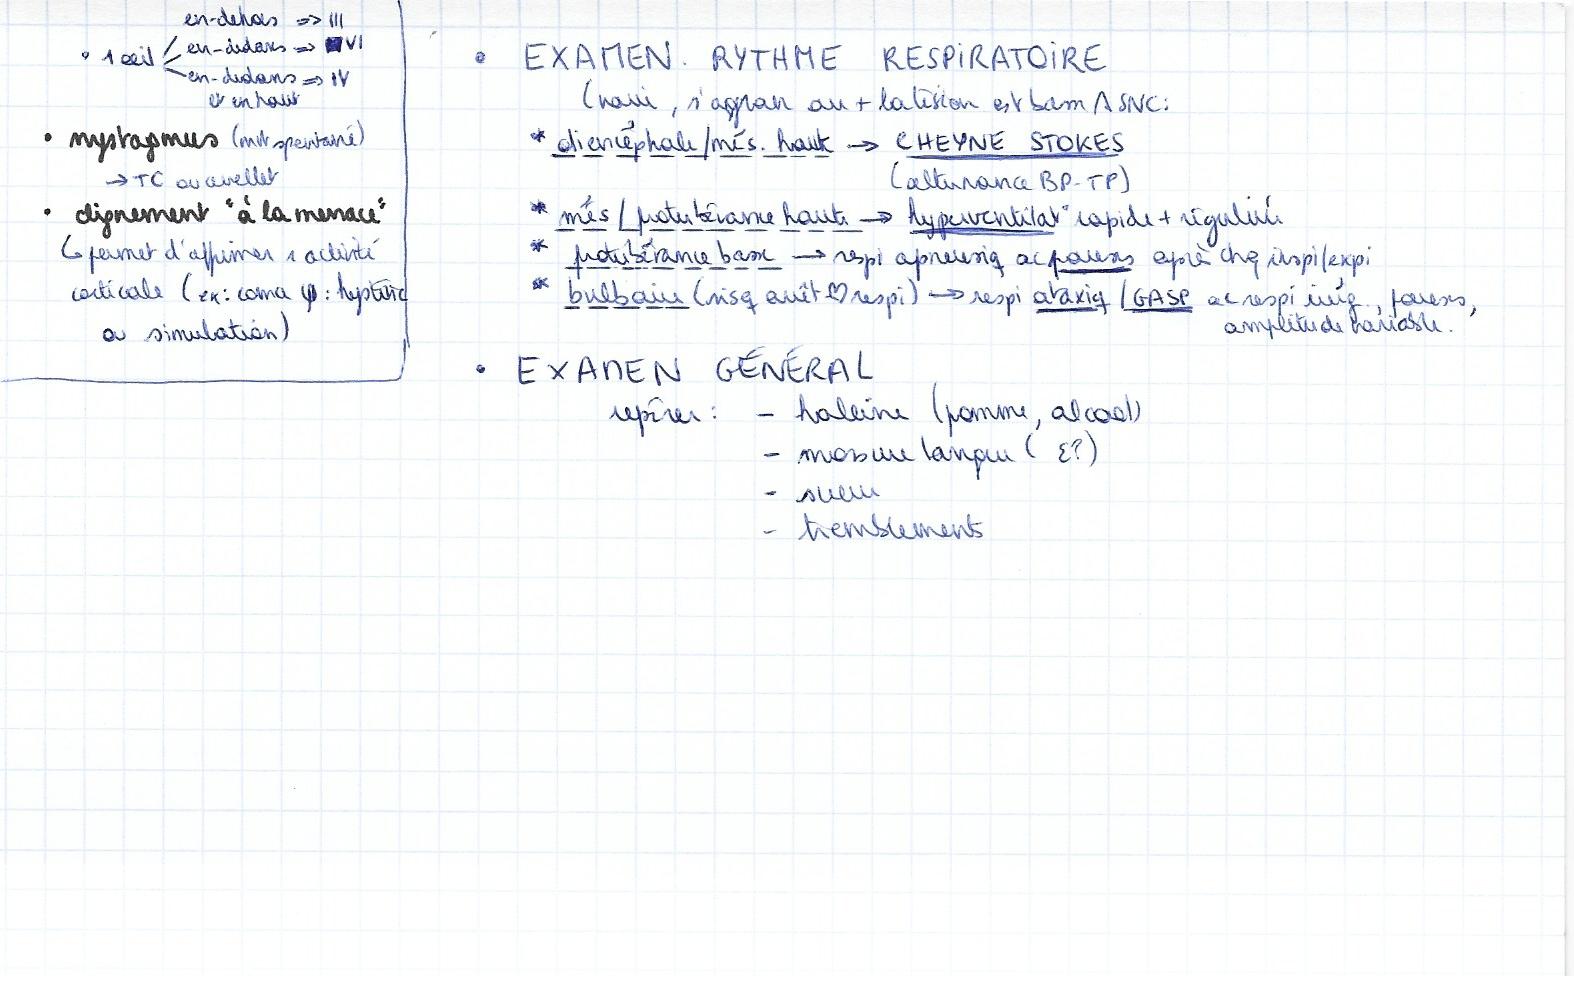 en-dehors => III
• 1 œil en-dedans => VI
en-dedans => IV
et en haut
• nystagmus (mvt spontané)
→ TC ou cervelet
• clignement "à la menace"
↳ permet d'affirmer 1 activité
corticale (ex: coma ψ: hystérie
ou simulation)
• EXAMEN RYTHME RESPIRATOIRE
s'aggrav au + la lésion est basse ds SNC:
* diencéphale/més. haut → CHEYNE STOKES
(alternance BP-TP)
* més/protubérance haute → hyperventilat° rapide + régulière
* protubérance basse → respi apneusiq ac pauses après chq inspi/expi
* bulbaire (risq arrêt ♡ respi) → respi ataxiq/GASP ac respi irrég., pauses,
amplitude variable.
• EXAMEN GÉNÉRAL
repérer: - haleine (pomme, alcool)
- morsure langue (ε?)
- sueur
- tremblements